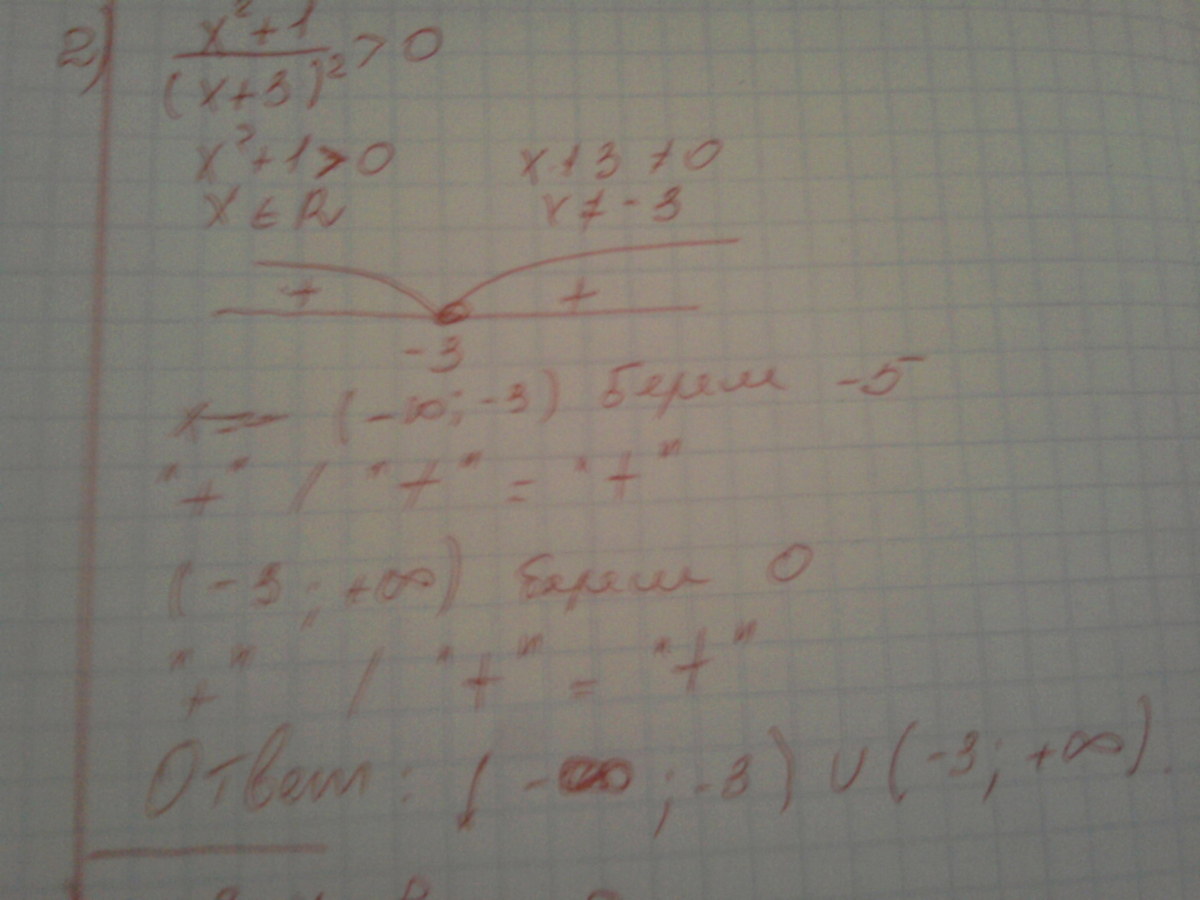 2) x²+1
(x+3)² > 0
x²+1>0 x+3≠0
x∈R x≠-3
+ +
-3
(-∞;-3) берем -5
"+" / "+" = "+"
(-3;+∞) берем 0
"+" / "+" = "+"
Ответ: (-∞;-3) ∪ (-3;+∞).